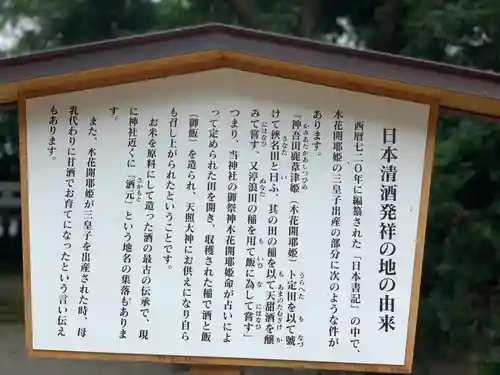 日本清酒発祥の地の由来
西暦七二〇年に編纂された「日本書記」の中で、
木花開耶姫の三皇子出産の部分に次のような件が
あります。
『神吾田鹿葦津姫（木花開耶姫）卜定田を以て號
けて狭名田と曰ふ、其の田の稲を以て天甜酒を醸
みて嘗す、又渟浪田の稲を用て飯に為して嘗す』
つまり、当神社の御祭神木花開耶姫命が占いによ
って定められた田を開き、収穫された稲で酒と飯
（御飯）を造られ、天照大神にお供えになり自ら
も召し上がられたということです。
お米を原料にして造った酒の最古の伝承で、現
に神社近くに「酒元」という地名の集落もありま
す。
また、木花開耶姫が三皇子を出産された時、母
乳代わりに甘酒でお育てになったという言い伝え
もあります。